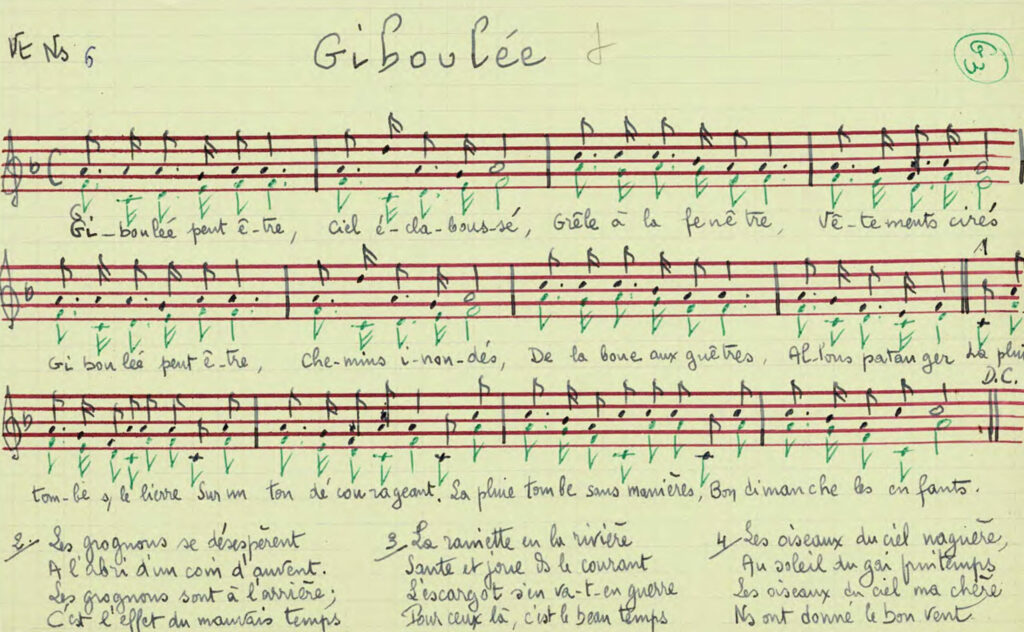 VE Ns 6
Giboulée
63
Gi-boulée peut ê-tre, Ciel é-cla-bous-sé, Grêle à la fenê tre, Vê-te ments cirés
1
Gi boulée peut ê-tre, Che-mins i-non-dés, De la boue aux guêtres, Al-lons patauger La pluie
D.C.
tom-be s/ le lierre Sur un ton dé cou-rageant. La pluie tombe sans manières, Bon dimanche les en fants.
2 Les grognons se désespèrent
A l'abri d'un coin d'auvent.
Les grognons sont à l'arrière;
C'est l'effet du mauvais temps
3 La rainette en la rivière
Saute et joue ds le courant
L'escargot s'en va-t-en guerre
Pour ceux là, c'est le beau temps
4 Les oiseaux du ciel naguère,
Au soleil du gai printemps
Les oiseaux du ciel ma chère
Ns ont donné le bon vent